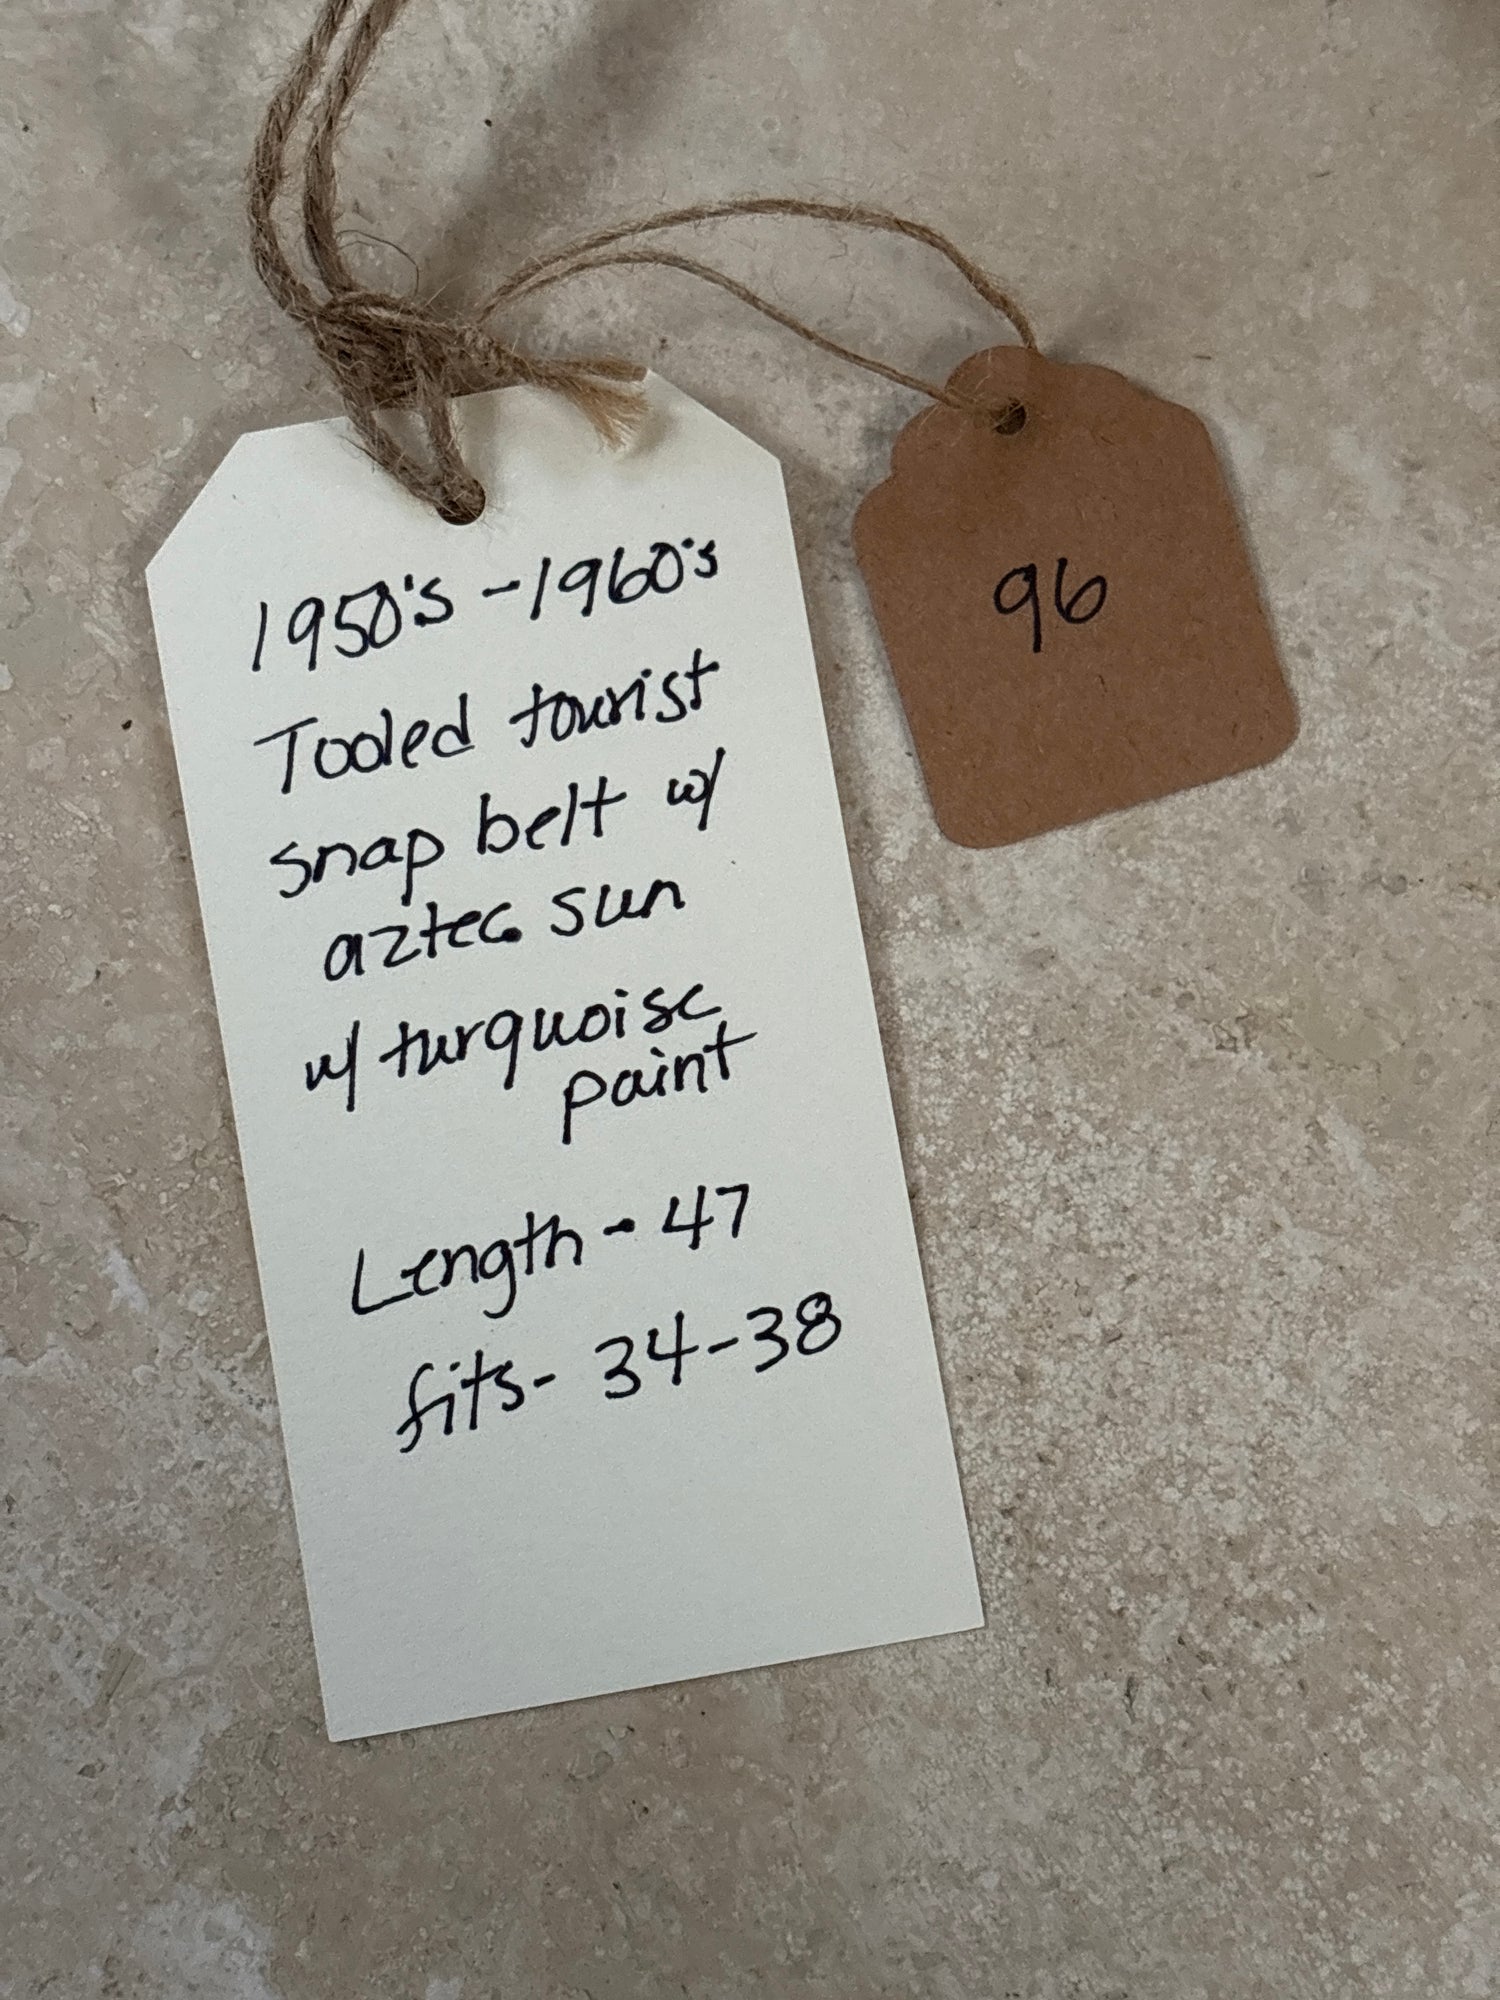 1950's - 1960's
Tooled tourist
snap belt w/
aztec sun
w/ turquoise
paint
Length - 47
fits - 34-38
96